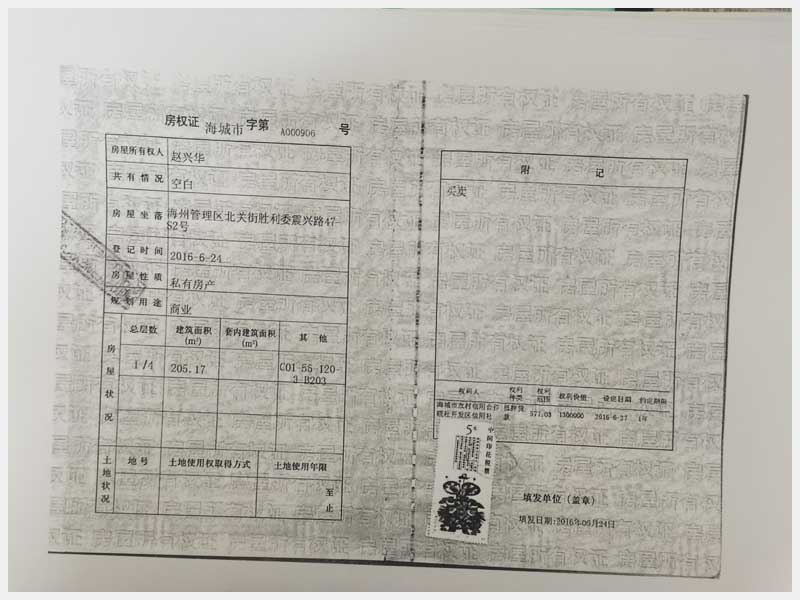 房权证 海城市 字第 A000906 号
房屋所有权人 赵兴华
共有情况 空白
房屋坐落 海州管理区北关街胜利委震兴路47-
S2号
登记时间 2016-6-24
房屋性质 私有房产
规划用途 商业
房屋状况
总层数 建筑面积 套内建筑面积 其他
(m²) (m²)
1/4 205.17 C01-55-120-
3-B203
土地状况
地号 土地使用权取得方式 土地使用年限
至
止
附记
买卖
权利人 权利种类 权利范围 权利价值 设定日期 约定期限
海城市农村信用合作 抵押贷 577.03 1300000 2016-6-27 1年
联社开发区信用社 款
5元
中国印花税票
填发单位(盖章)
填发日期:2016年06月24日